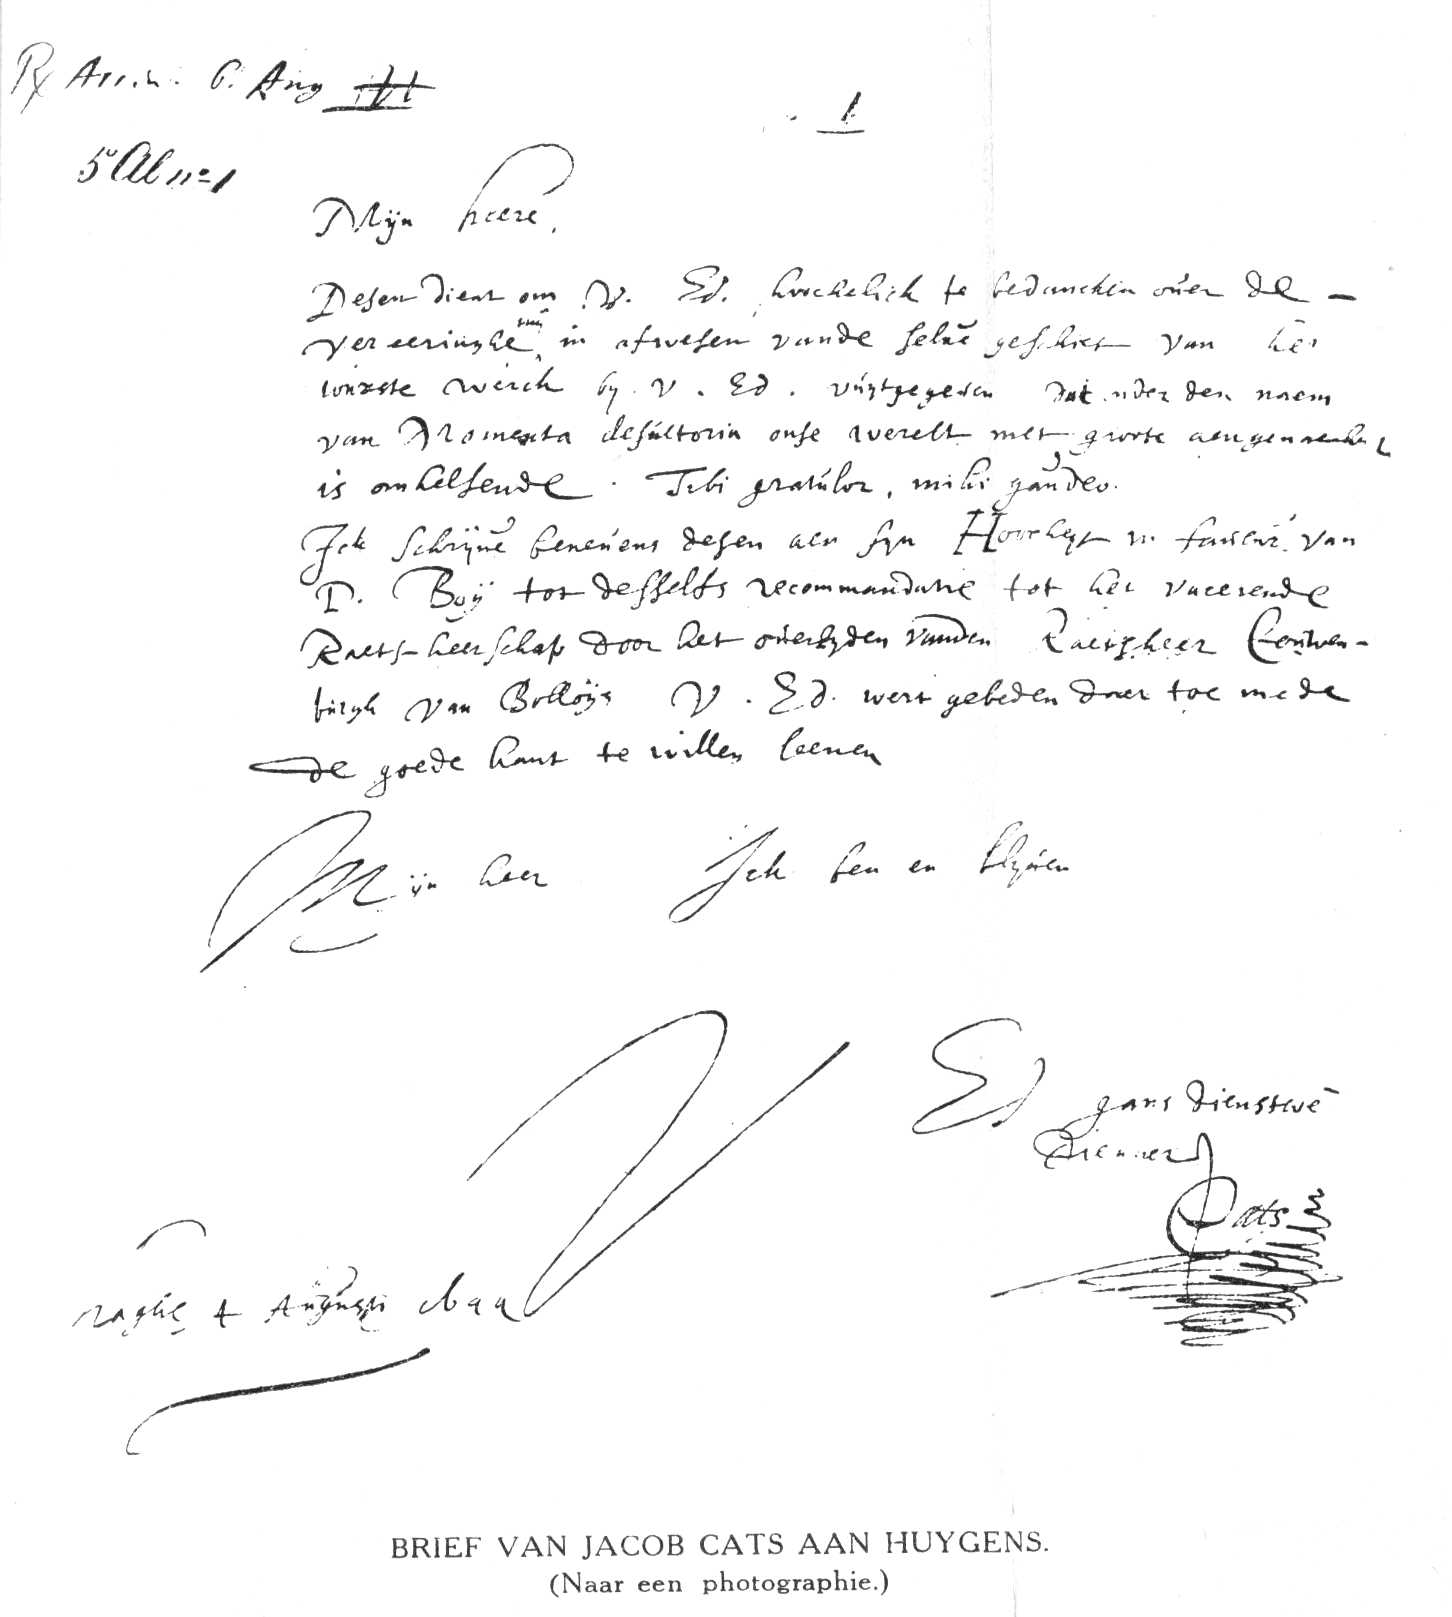 6. Aug
1
Mijn heere,
Desen dient om V. Ed. hoochelick te bedancken over de
vereeringhe mij in afwesen vande selve geschiet van het
werck by V. Ed. vuytgegeven dat onder den naem
van Momenta desultoria onse werelt met groote
is omhelsende. Tibi gratulor, mihi gaudeo.
Ick schrijve beneuens desen aen syn Hoocheyt in faueur van
D. Boÿ tot desselfs recommandatie tot het vacerende
Raets-heerschap door het overlyden vanden Raetsheer
burgh van V. Ed. wert gebeden daer toe mede
de goede hant te willen leenen
Mijn heer Ick ben en blyven
V Ed gans dienstwe
Diener
Cats
haghe 4 Augusti
BRIEF VAN JACOB CATS AAN HUYGENS.
(Naar een photographie.)